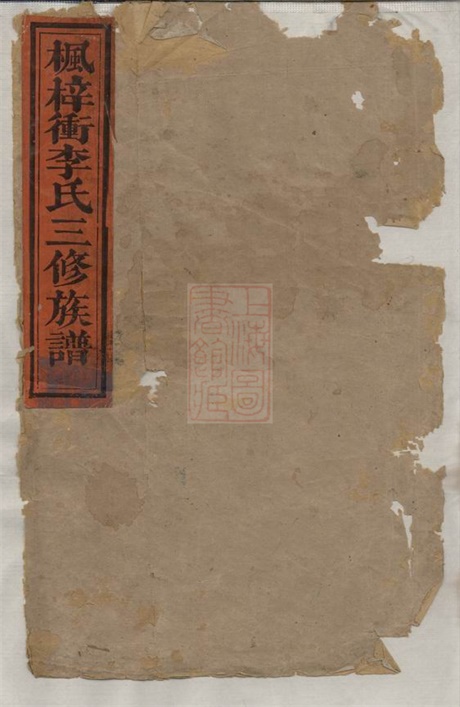 楓梓衝李氏三修族譜
上海圖書館藏